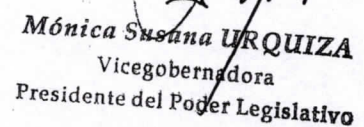 Mónica Susana URQUIZA
Vicegobernadora
Presidente del Poder Legislativo